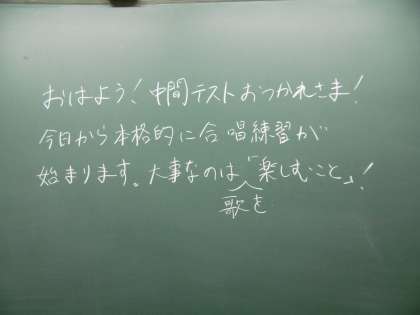 おはよう!中間テストおつかれさま!
今日から本格的に合唱練習が
始まります。大事なのは「楽しむこと」!
歌を